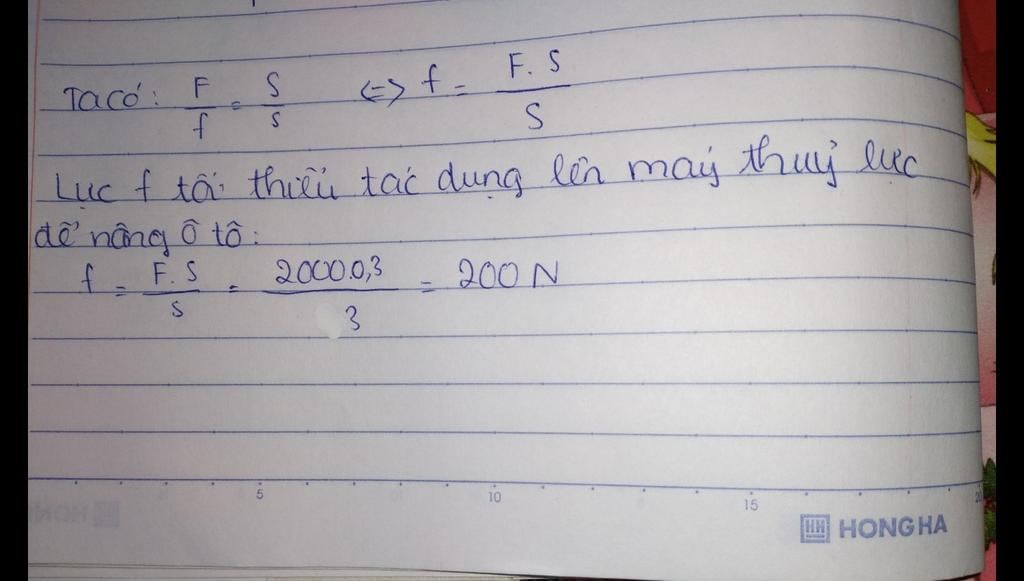 Ta có: F/f = S/s <=> f = F.S/S
Lực f tối thiểu tác dụng lên máy thuỷ lực
để nâng ô tô:
f = F.S/s = 2000.0,3/3 = 200 N
5 10 15 20
HH HONG HA